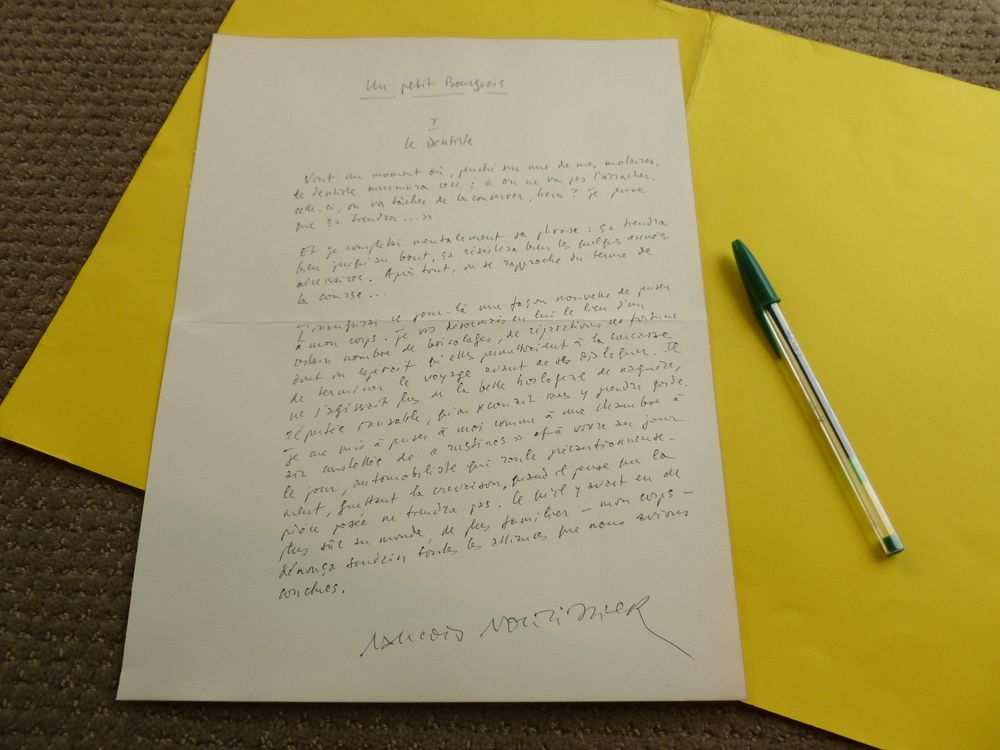 Un petit Bourgeois
I
Le dentiste
Vint un moment où, penché sur une de mes molaires,
le dentiste murmura ceci : « on ne va pas l'arracher,
celle-ci, on va tâcher de la conserver, hein ? Je pense
que ça tiendra.... »
Et je complétai mentalement sa phrase : ça tiendra
bien jusqu'au bout, ça résistera bien les quelques années
nécessaires. Après tout, on se rapproche du terme de
la course...
J'inaugurai ce jour-là une façon nouvelle de penser
à mon corps. Je vis désormais en lui le lieu d'un
certain nombre de bricolages, de réparations de fortune
dont on espérait qu'elles permettraient à la carcasse
de terminer le voyage avant de se disloquer. Il
ne s'agissait plus de la belle horlogerie de naguère,
réputée inusable, qu'on sans y prendre garde.
Je me mis à penser à moi comme à une chambre à
air constellée de « rustines » et à vivre au jour
le jour, automobiliste qui roule précautionneuse-
ment, guettant la crevaison, quand il pense que la
pièce posée ne tiendra pas. Ce qu'il y avait en de
plus sûr au monde, de plus familier – mon corps –
dénonça soudain toutes les alliances que nous avions
conclues.
François Nourissier